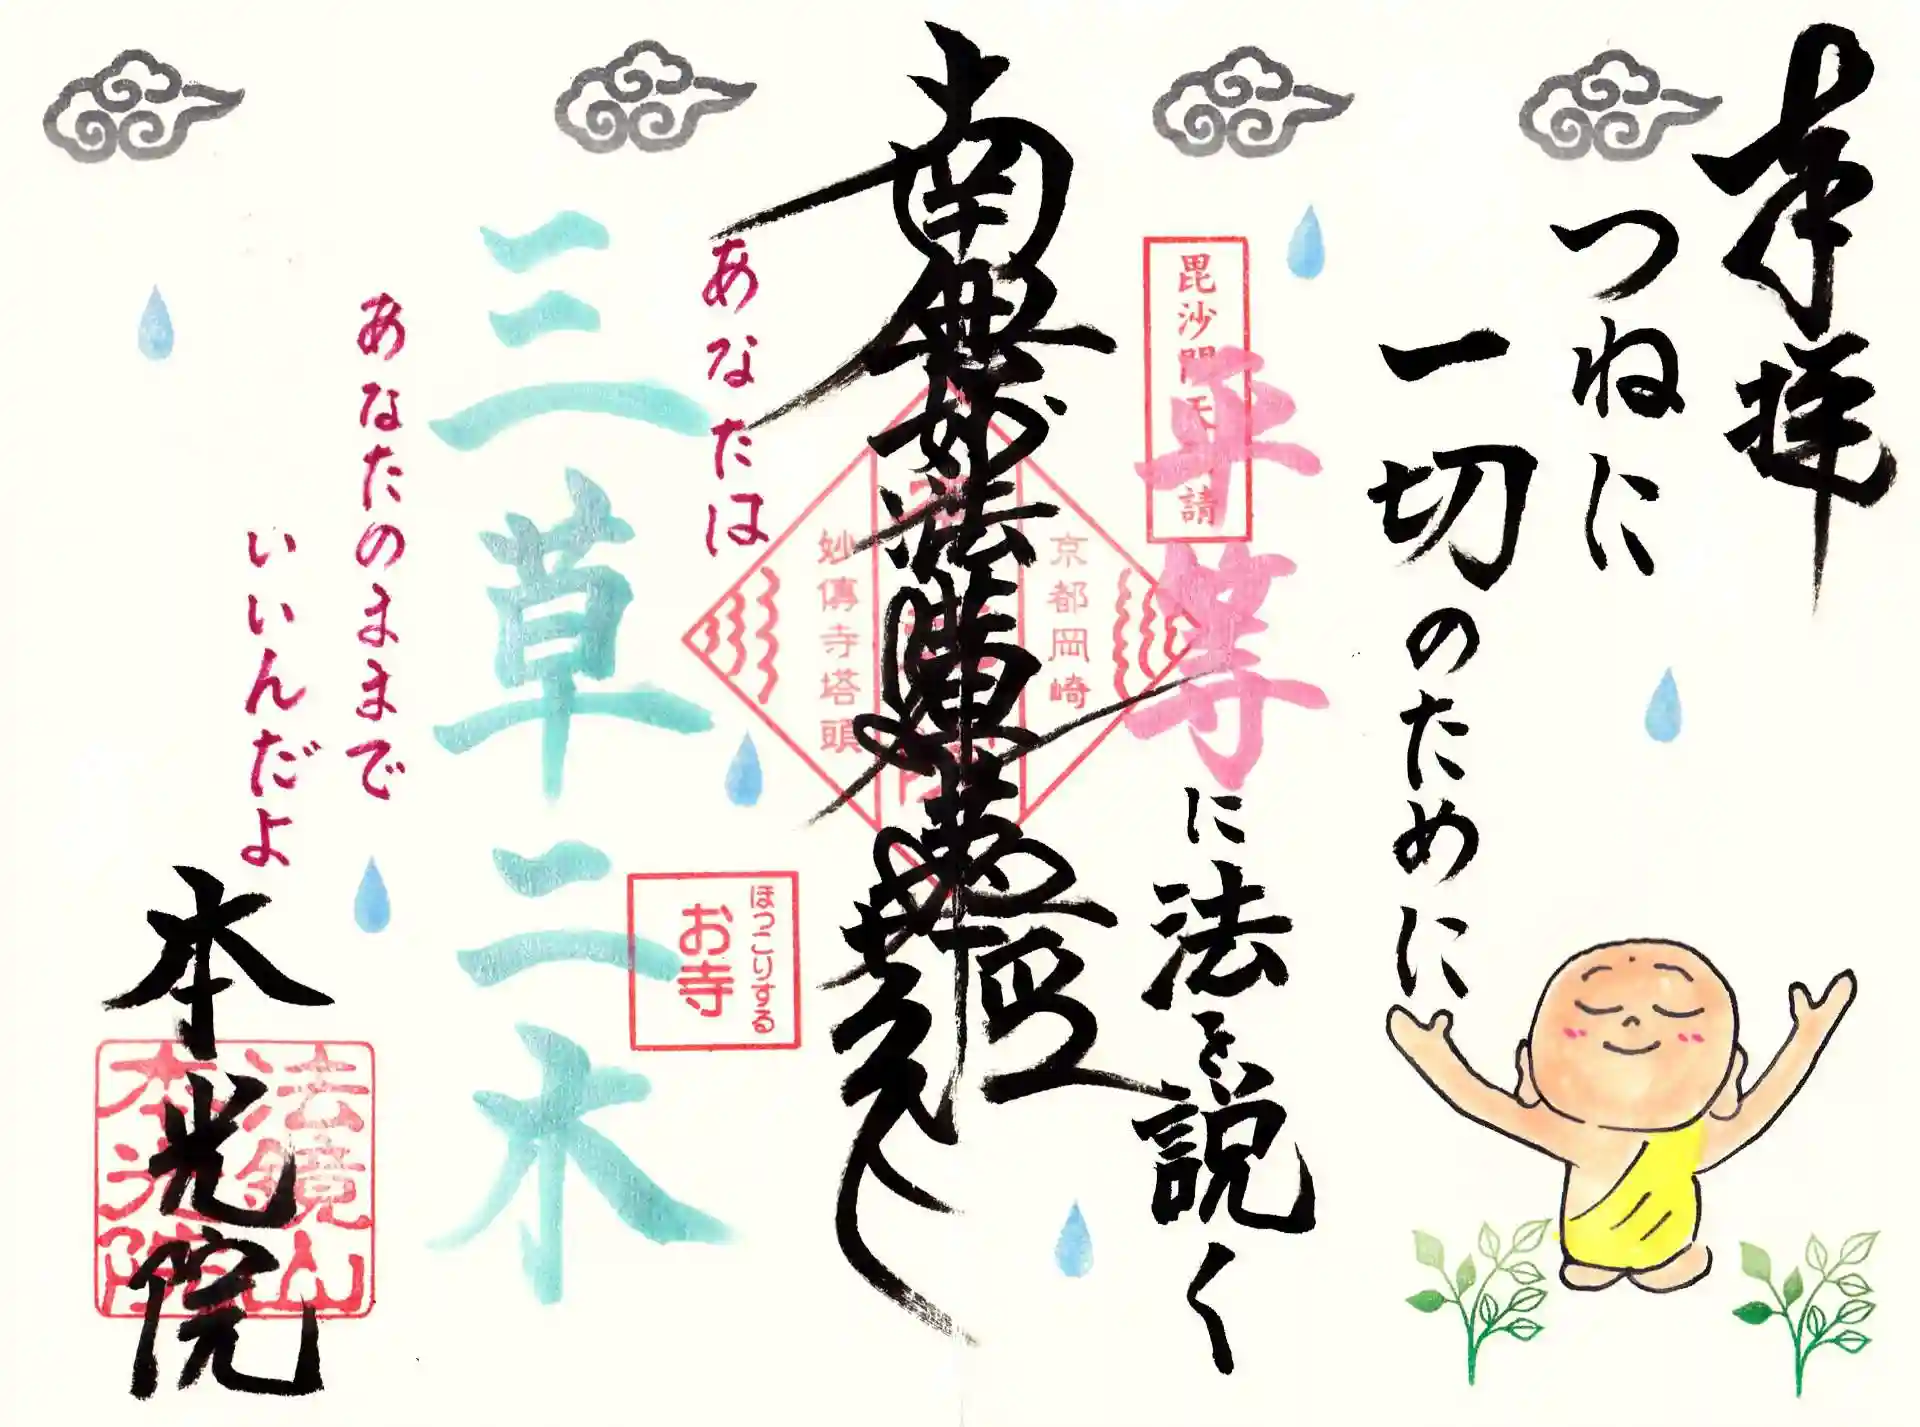 奉拝
つねに
一切のために
平等に法を説く
毘沙門天 請
京都岡崎
南無妙法蓮華経
妙傳寺塔頭
あなたは
ほっこりする
お寺
三草二木
あなたのままで
いいんだよ
本光院
法鏡山
本光院